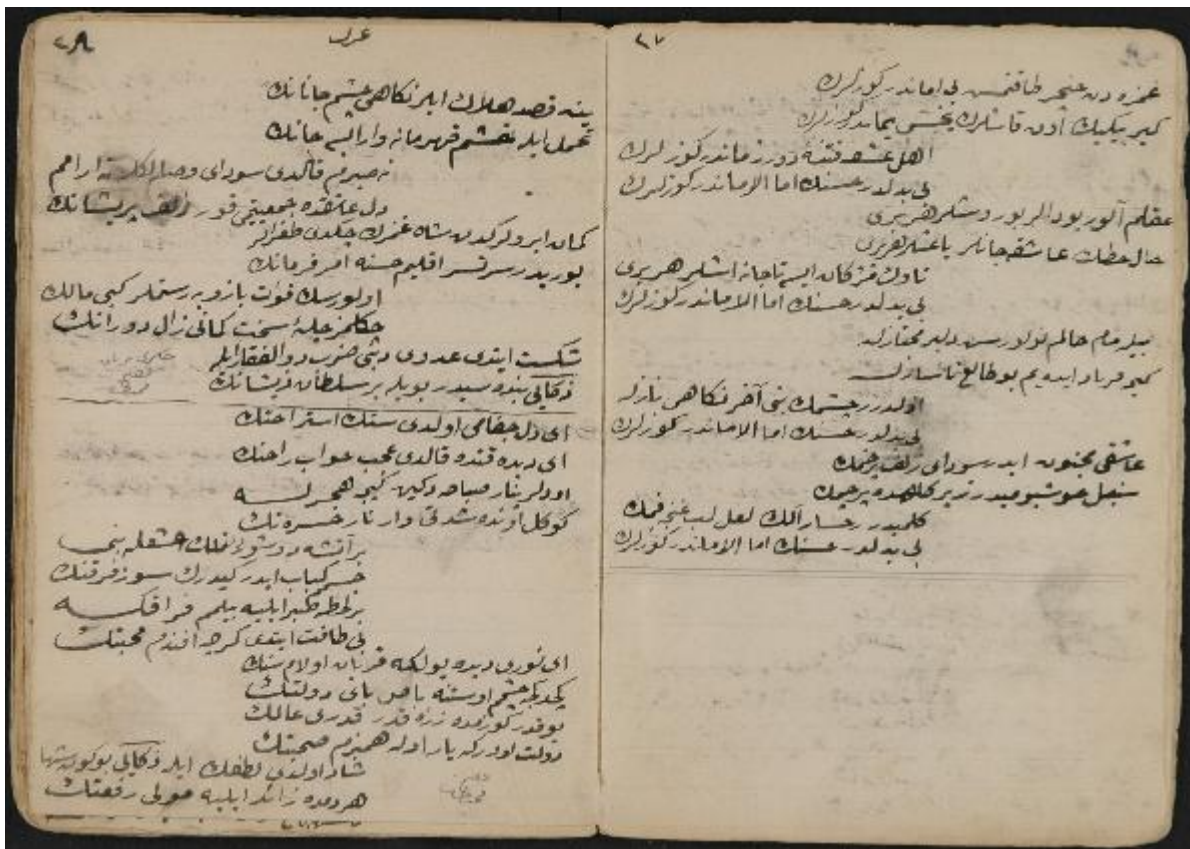 ٢٧
غمزه دن خنجر طاقنمش بی اماندر کوزلرك
كیر بیكیك اون قاشلرك یماندر كوزلرك
اهل عشقه فتنهٔ دور زماندر كوزلرك
بی بدلدر حسنك اما الاماندر كوزلرك
عقلم آلور بودالر
خال خطك عاشقه جانلر باغشلر هر بری
ناوك مژكان ایسه تا جانه ایشلر هر بری
بی بدلدر حسنك اما الاماندر كوزلرك
بیلمم حالم نولور سن دلبر ممتازله
كیمه فریاد ایده یم بو طالع ناسازله
اولدرر چشمك بنی آخر نكاهی نازله
بی بدلدر حسنك اما الاماندر كوزلرك
عاشقی مجنون ایدر سودای زلف پر خمك
سنبل خوشبو میدر زیر كلهده پرچمك
كلمیدر رخسار آلك لعل لب غنچه فمك
بی بدلدر حسنك اما الاماندر كوزلرك
٢٨
غزل
ینه قصد هلاك ایلر نكاهی چشم جانانك
تحمل ایله خشم قهرمانه وار ایسه جانك
نه صبرم قالدی سودای وصالكله نه آرامم
دل عاشقده جمعیتمی قور زلف پریشانك
كمان ابرولركدن شاه غمزك چكدی طغرالر
یوریدر سرتسر اقلیم حسنه امر فرمانك
اولورسك قوت بازویه رستملر كبی مالك
چكلمز چلهٔ سخت كمانی زال دورانك
شكست ایتدی عدوی دینی ضرب ذوالفقار ایله
ذكایی بنده سیدر بویله بر سلطان ذیشانك
ای دل جفامی اولدی سنك استراحتك
ای دیده قنده قالدی عجب خواب راحتك
اودلر یانار صباحه دكین كیجه هجرله
كوكل اونده شدتی وار نار حسرتك
بر آتشه دوشوردی فلك عشقله بنی
جسمم كباب ایدر كیدرك سوز فرقتك
بر لحظه صبر ایلیه بیلمم فراقكه
بی طاقت ایتدی كرچه افندم محبتك
ای نوری دیده یولكه قربان اولام سنك
چشمم اوستنه باص پای دولتك
یوقدر كوزمده ذره قدر قدری عالمك
دولت اودر كه یار اوله همبزم صحبتك
شاد اولدی لطفك ایله ذكایی بوكون شها
هر دمده زائد ایلیه مولی رفعتك